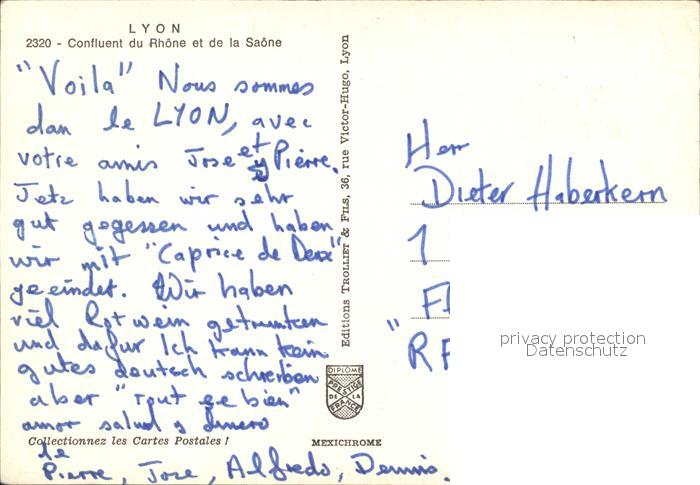 LYON
2320 - Confluent du Rhône et de la Saône
"Voila" Nous sommes
dan le LYON, avec
votre amis Jose et y Pierre.
Jetz haben wir sehr
gut gegessen und haben
wir mit "Caprice de Deux"
geeindet. Wir haben
viel Rotwein getrunken
und dafur Ich kann kein
gutes deutsch schreiben
aber "Tout ce bien"
amor salud y dinero
de
Pierre, Jose, Alfredo, Dennis.
Collectionnez les Cartes Postales !
MEXICHROME
Editions TROLLIET & FILS, 36, rue Victor-Hugo, Lyon
DIPLOME
PRESTIGE
DE LA
FRANCE
Herr
Dieter Haberkern
1
"
privacy protection
Datenschutz